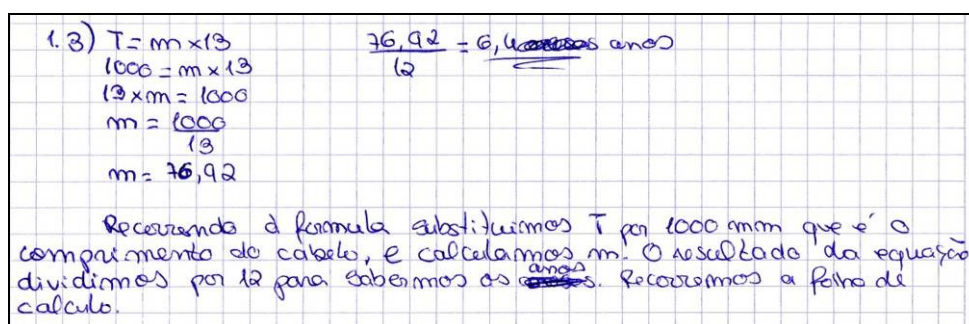 1.3) T = m x 13
1000 = m x 13
13 x m = 1000
m = 1000
13
m = 76,92
76,92 = 6,4 anos
12
Recorrendo à formula substituimos T por 1000 mm que é o
comprimento do cabelo, e calculamos m. O resultado da equação
dividimos por 12 para sabermos os anos. Recorremos a folha de
calculo.